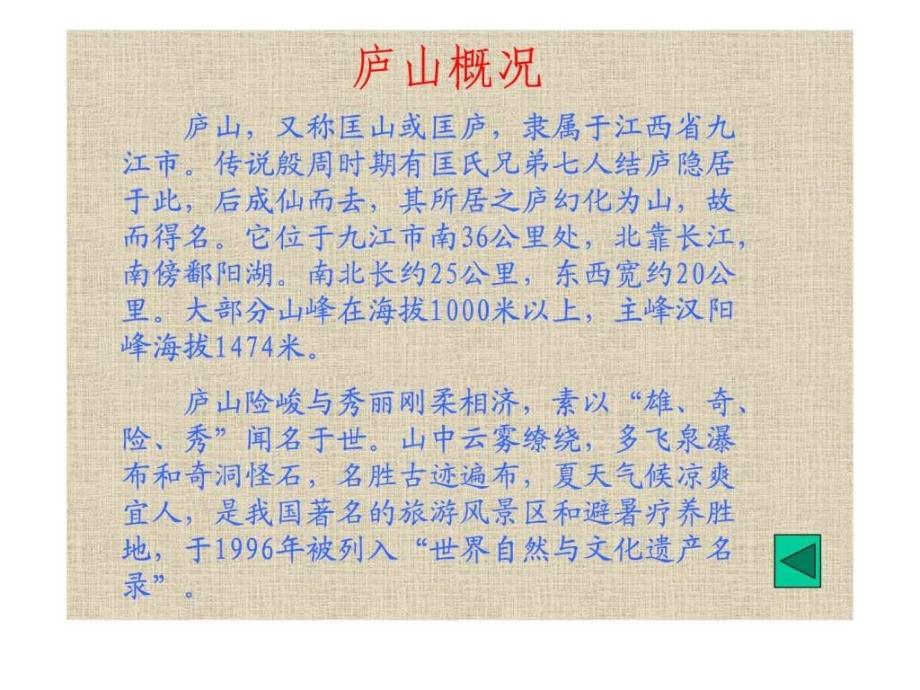 庐山概况
庐山，又称匡山或匡庐，隶属于江西省九
江市。传说殷周时期有匡氏兄弟七人结庐隐居
于此，后成仙而去，其所居之庐幻化为山，故
而得名。它位于九江市南36公里处，北靠长江，
南傍鄱阳湖。南北长约25公里，东西宽约20公
里。大部分山峰在海拔1000米以上，主峰汉阳
峰海拔1474米。
庐山险峻与秀丽刚柔相济，素以“雄、奇、
险、秀”闻名于世。山中云雾缭绕，多飞泉瀑
布和奇洞怪石，名胜古迹遍布，夏天气候凉爽
宜人，是我国著名的旅游风景区和避暑疗养胜
地，于1996年被列入“世界自然与文化遗产名
录”。